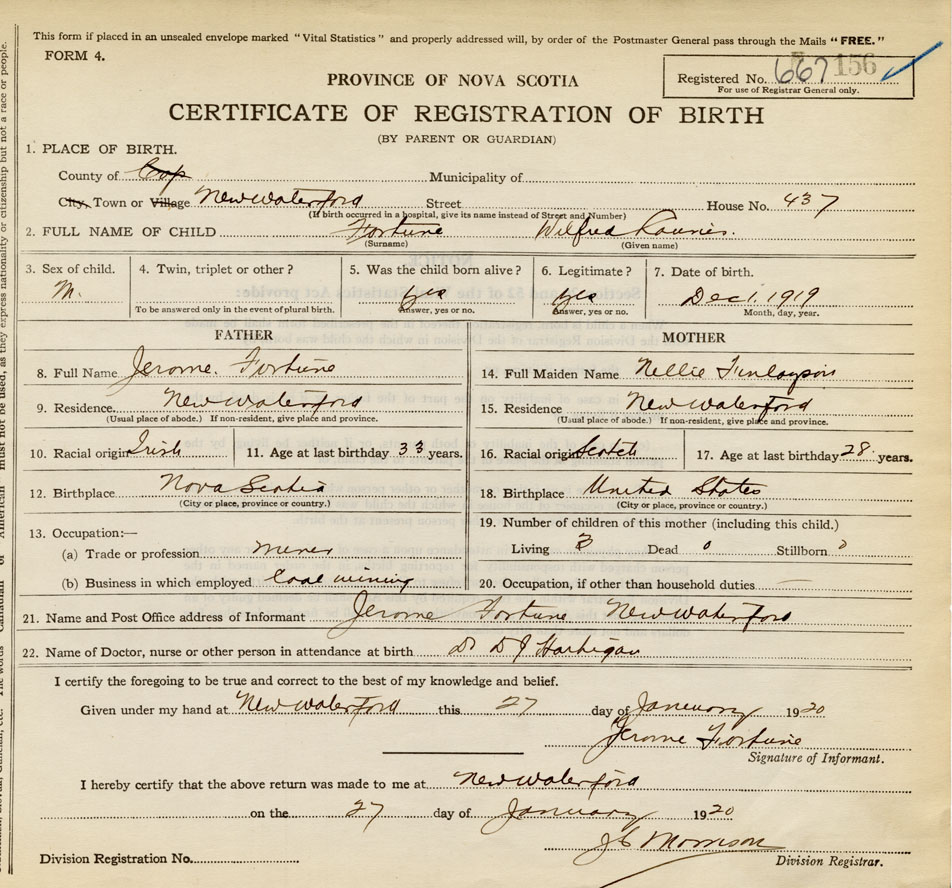 This form if placed in an unsealed envelope marked "Vital Statistics" and properly addressed will, by order of the Postmaster General pass through the Mails "FREE."
FORM 4.
Registered No. 667 156
For use of Registrar General only.
PROVINCE OF NOVA SCOTIA
CERTIFICATE OF REGISTRATION OF BIRTH
(BY PARENT OR GUARDIAN)
1. PLACE OF BIRTH.
County of Municipality of
City, Town or Village New Waterford Street House No. 437
(If birth occurred in a hospital, give its name instead of Street and Number)
2. FULL NAME OF CHILD Fortune Wilfred
(Surname) (Given name)
3. Sex of child. 4. Twin, triplet or other? 5. Was the child born alive? 6. Legitimate? 7. Date of birth.
M. yes yes Dec 1. 1919
To be answered only in the event of plural birth. Answer, yes or no. Answer, yes or no. Month, day, year.
FATHER MOTHER
8. Full Name Jerome. Fortune 14. Full Maiden Name Nellie Finlayson
9. Residence. New Waterford 15. Residence New Waterford
(Usual place of abode.) If non-resident, give place and province. (Usual place of abode.) If non-resident, give place and province.
10. Racial origin Irish 11. Age at last birthday 33 years. 16. Racial origin Scotch 17. Age at last birthday 28 years.
12. Birthplace Nova Scotia 18. Birthplace United States
(City or place, province or country.) (City or place, province or country.)
13. Occupation:— 19. Number of children of this mother (including this child.)
(a) Trade or profession miner Living 3 Dead 0 Stillborn 0
(b) Business in which employed Coal mining 20. Occupation, if other than household duties —
21. Name and Post Office address of Informant Jerome Fortune New Waterford
22. Name of Doctor, nurse or other person in attendance at birth Dr D J Hartigan
I certify the foregoing to be true and correct to the best of my knowledge and belief.
Given under my hand at New Waterford this 27 day of Januuary 1920
Jerome Fortune
Signature of Informant.
I hereby certify that the above return was made to me at New Waterford
on the 27 day of January 1920
Morrison
Division Registration No. Division Registrar.